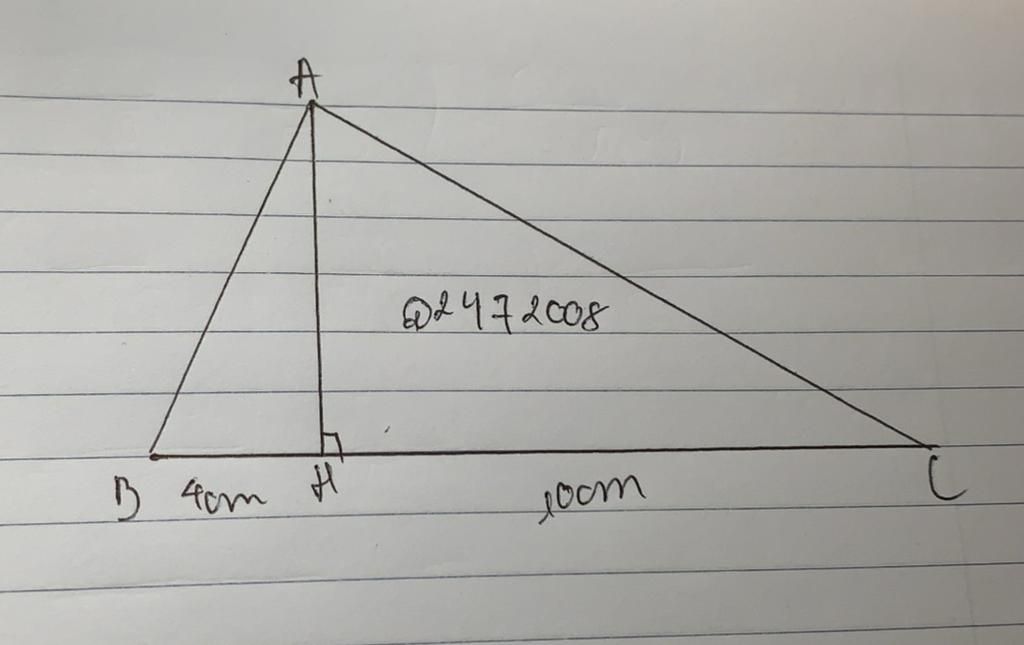 A
@2472008
B 4cm H 10cm C